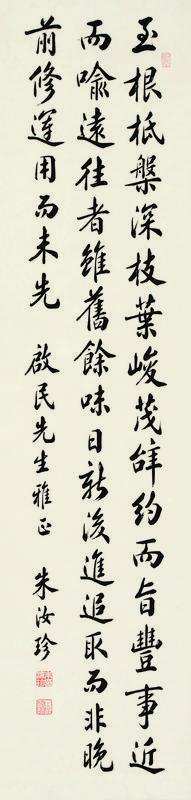 至根柢槃深枝葉峻茂辝約而旨豐事近
而喻遠往者雖舊餘味日新後進追取而非晚
前修運用而未先 啟民先生雅正 朱汝珍